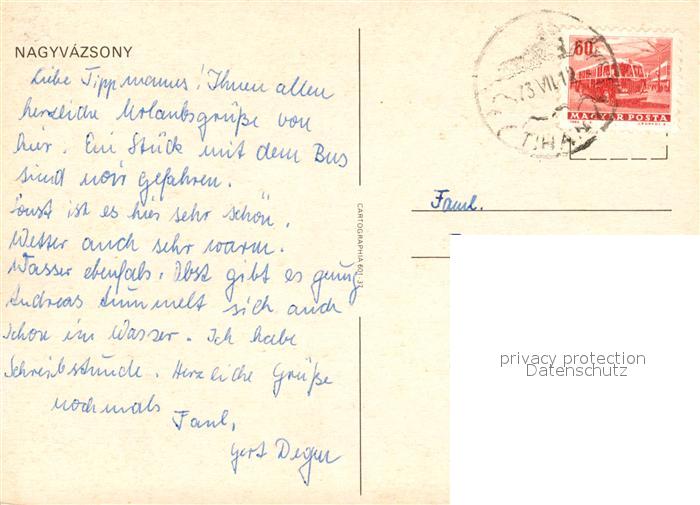 NAGYVÁZSONY
Liebe Tippmanns! Ihnen allen
herzliche Urlaubsgrüße von
hier. Ein Stück mit dem Bus
sind wir gefahren.
Sonst ist es hier sehr schön.
Wetter auch sehr warm.
Wasser ebenfals. Obst gibt es genug
Andreas tummelt sich auch
schon im Wasser. Ich habe
Schreibstunde. Herzliche Grüße
nochmals
Faml.
Gert
CARTOGRAPHIA 601/33
60f
MAGYAR POSTA
73 VII.1
TIHANY
Faml.
privacy protection
Datenschutz